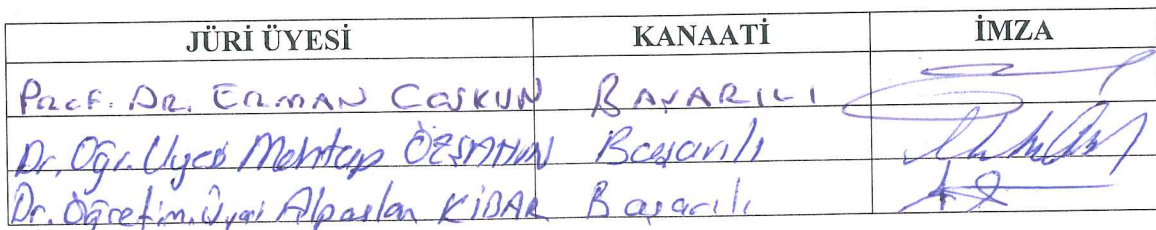 JÜRİ ÜYESİ KANAATİ İMZA
Prof. Dr. ERMAN COŞKUN BAŞARILI
Dr. Öğr. Üyesi Mehtap ÖZŞAHİN Başarılı
Dr. Öğretim. Üyesi Alpaslan KİBAR Başarılı